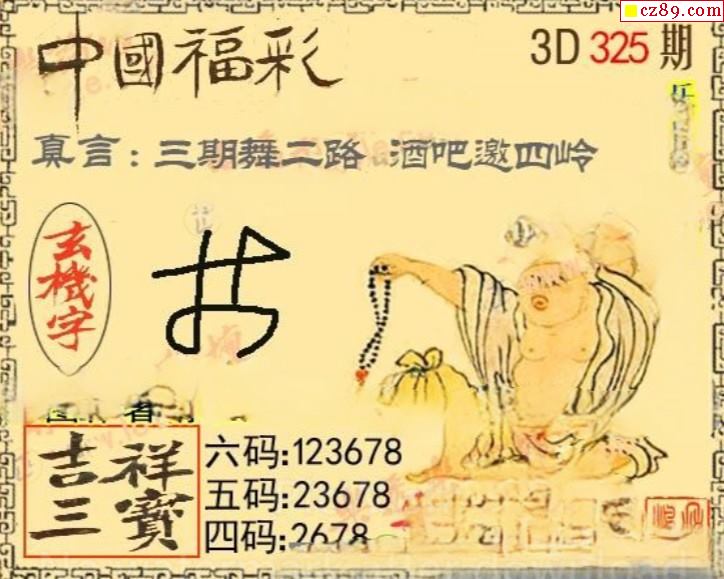 cz89.com
中國福彩
3D 325 期
真言：三期舞二路 酒吧邀四岭
玄機字
吉祥三寶
六码:123678
五码:23678
四码:2678